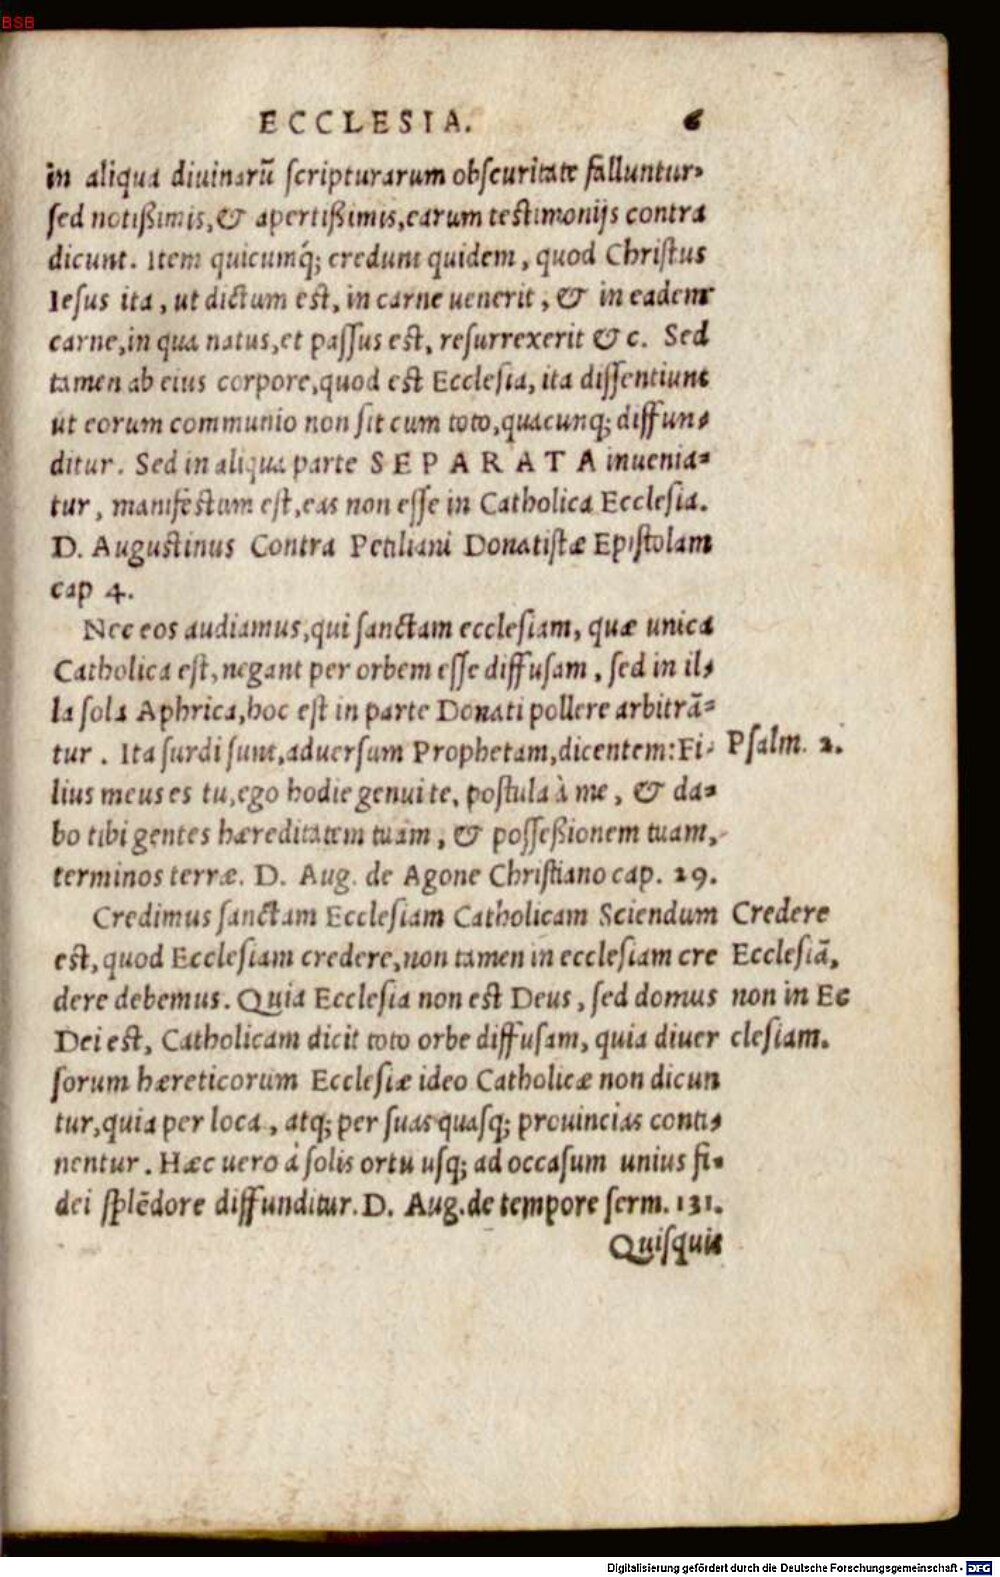 BSB
ECCLESIA. 6
in aliqua diuinarũ scripturarum obscuritate falluntur,
sed notißimis, & apertißimis, earum testimonijs contra
dicunt. Item quicumq́; credunt quidem, quod Christus
Iesus ita, ut dictum est, in carne uenerit, & in eadem
carne, in qua natus, et passus est, resurrexerit & c. Sed
tamen ab eius corpore, quod est Ecclesia, ita dissentiunt
ut eorum communio non sit cum toto, quacunq; diffun-
ditur. Sed in aliqua parte SEPARATA inuenia-
tur, manifestum est, eas non esse in Catholica Ecclesia.
D. Augustinus Contra Petiliani Donatistæ Epistolam
cap 4.
Nec eos audiamus, qui sanctam ecclesiam, quæ unica
Catholica est, negant per orbem esse diffusam, sed in il-
la sola Aphrica, hoc est in parte Donati pollere arbitrã-
tur. Ita surdi sunt, aduersum Prophetam, dicentem: Fi-
Psalm. 2.
lius meus es tu, ego hodie genui te, postula à me, & da-
bo tibi gentes hæreditatem tuam, & possessionem tuam,
terminos terræ. D. Aug. de Agone Christiano cap. 29.
Credimus sanctam Ecclesiam Catholicam Sciendum
est, quod Ecclesiam credere, non tamen in ecclesiam cre
dere debemus. Quia Ecclesia non est Deus, sed domus
Dei est, Catholicam dicit toto orbe diffusam, quia diuer
Credere
Ecclesiã,
non in Ec
clesiam.
sorum hæreticorum Ecclesiæ ideo Catholicæ non dicun
tur, quia per loca, atq; per suas quasq; prouincias conti-
nentur. Hæc uero á solis ortu usq; ad occasum unius fi-
dei splẽdore diffunditur. D. Aug. de tempore serm. 131.
Quisquis
Digitalisierung gefördert durch die Deutsche Forschungsgemeinschaft - DFG